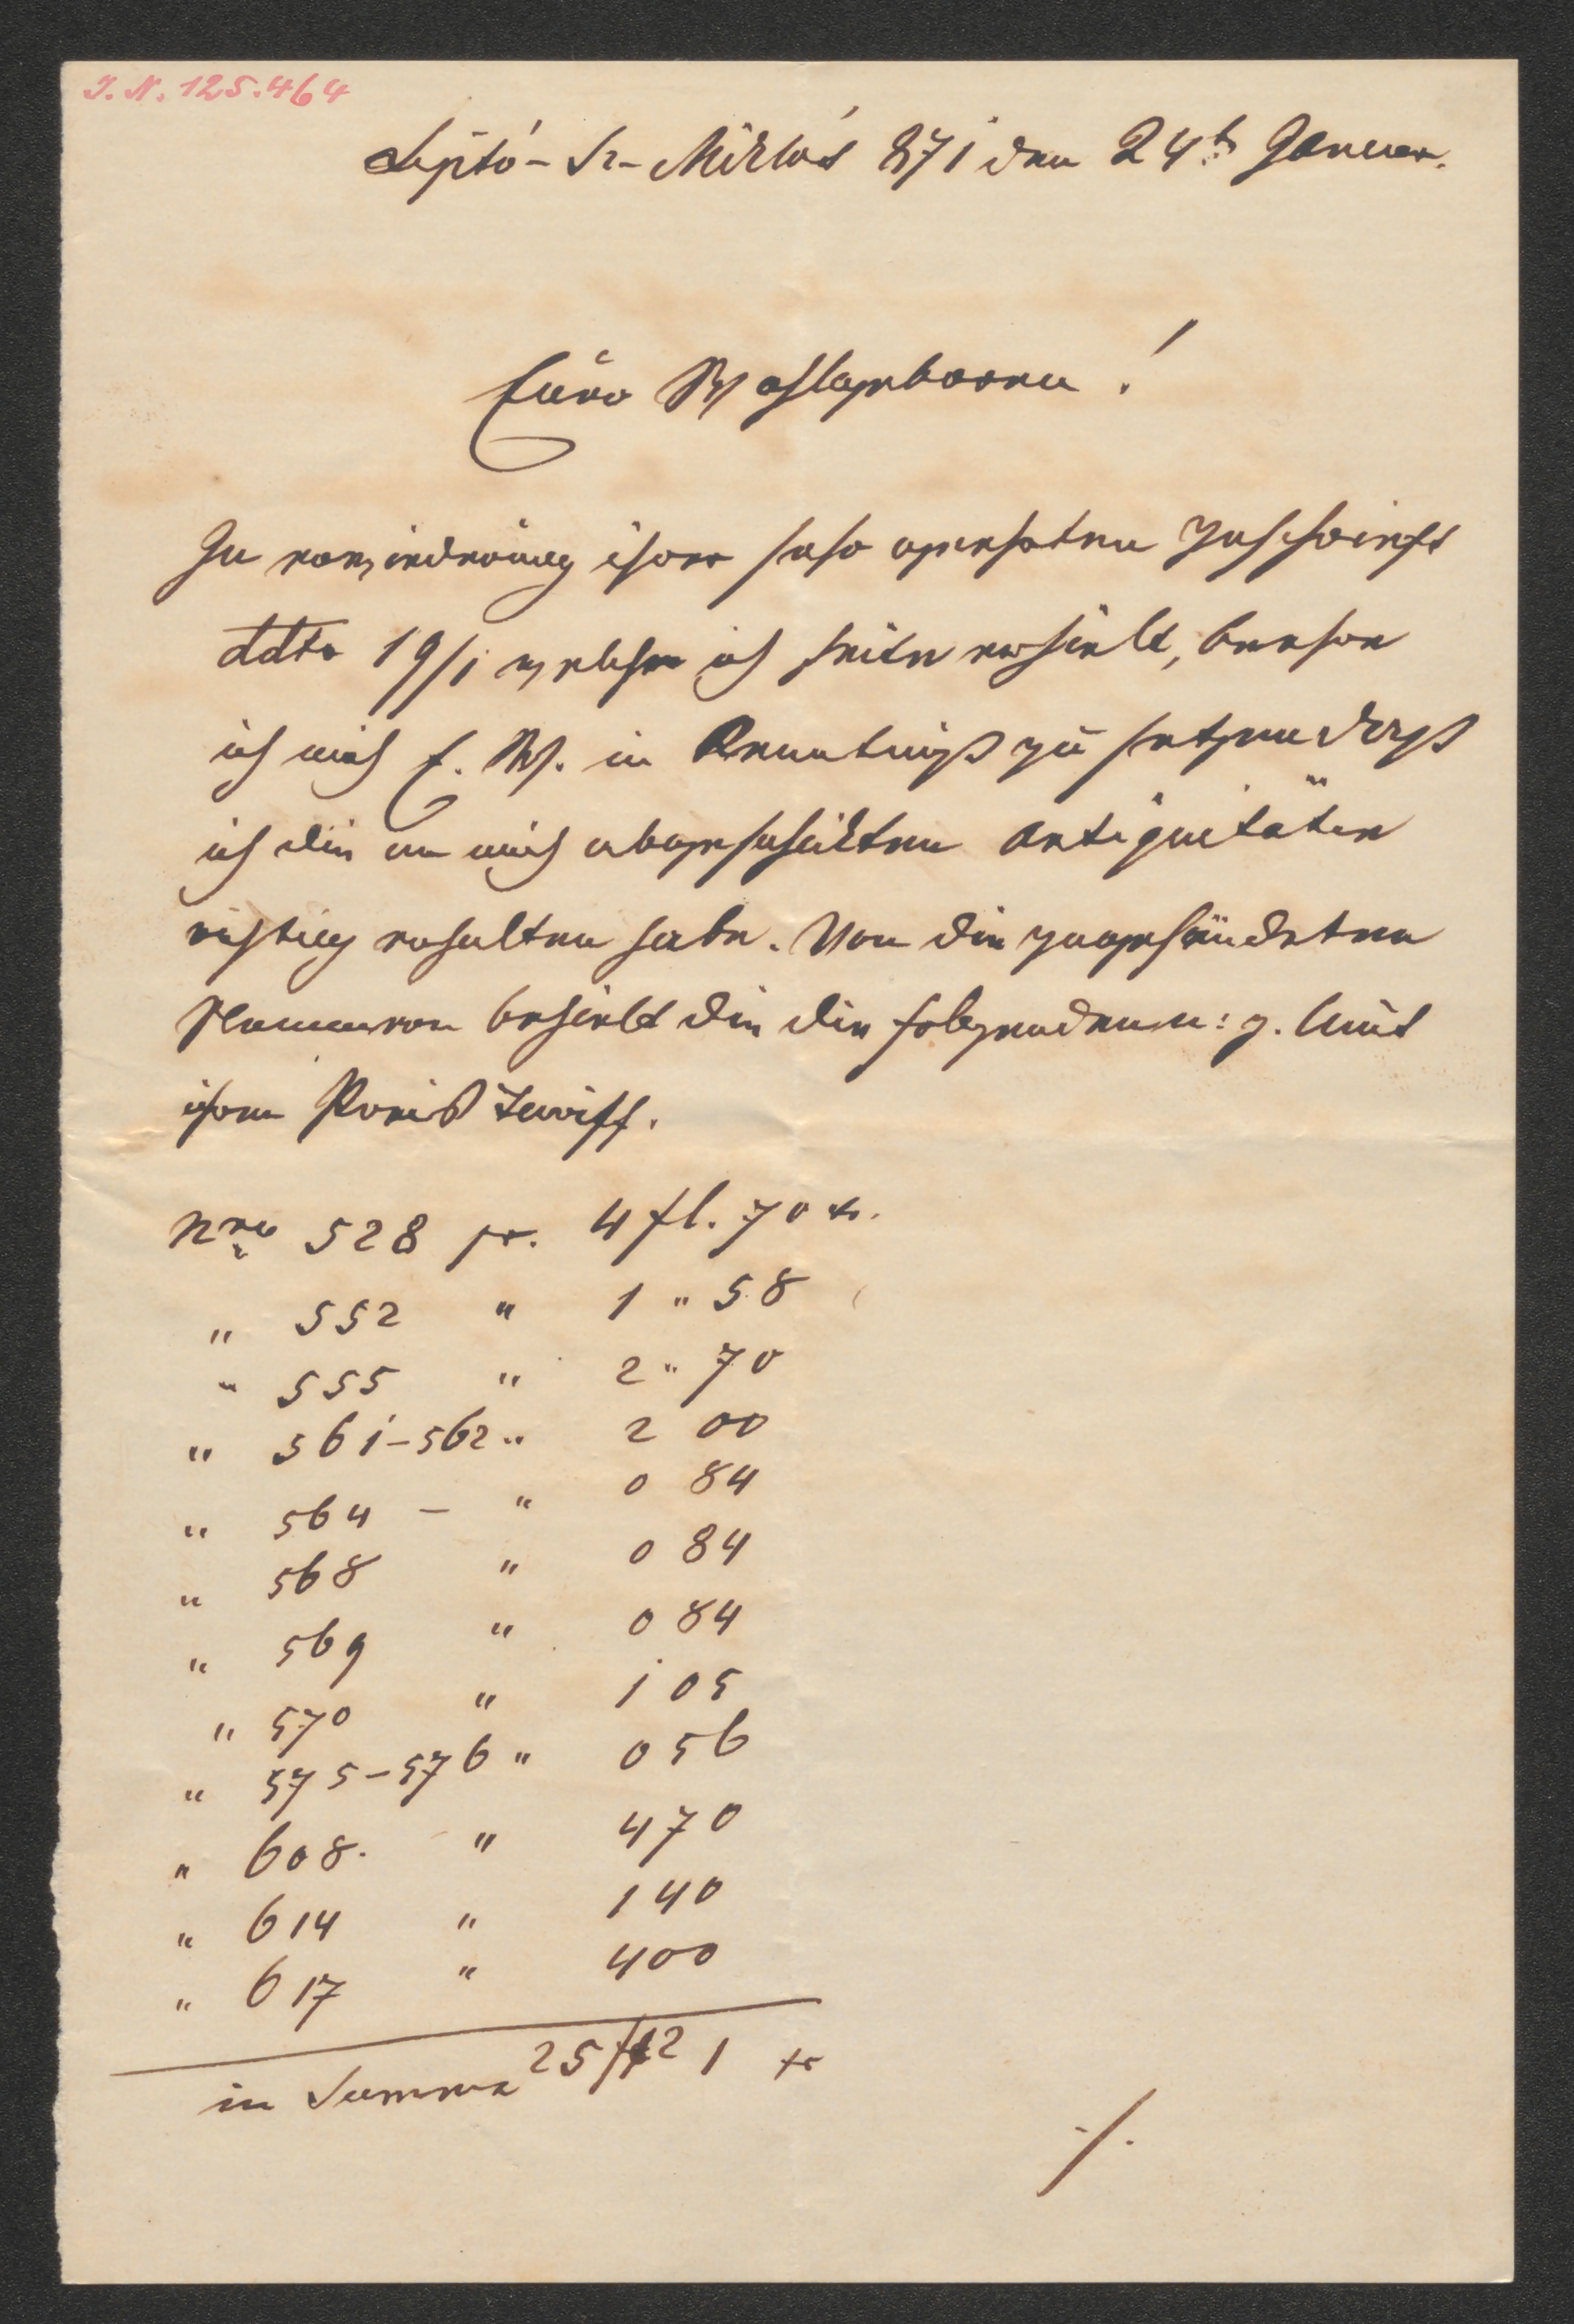 I. N. 125.464
Liptó-Sz-Miklós 871 den 24t. Januar.
Eure Wohlgeboren!
In erwiederung ihrer sehr geehrten Zuschrift
ddto 19/1 welche ich heite erhielt, beehre
ich mich E. W. in Kenntniß zu setzen daß
ich die an mich abgeschickten Antiquitäten
richtig erhalten habe. Von die zugesändeten
Nummeren behielt die die folgenden u: z. laut
ihren Preis Tariff.
Nro 528 pr. 4 fl. 70 xr.
" 552 " 1 " 58
" 555 " 2 " 70
" 561-562 " 2 00
" 564 - " 0 84
" 568 " 0 84
" 569 " 0 84
" 570 " 1 05
" 575-576 " 0 56
" 608. " 4 70
" 614 " 1 40
" 617 " 4 00
in Summa 25 fl 21 xr
./.